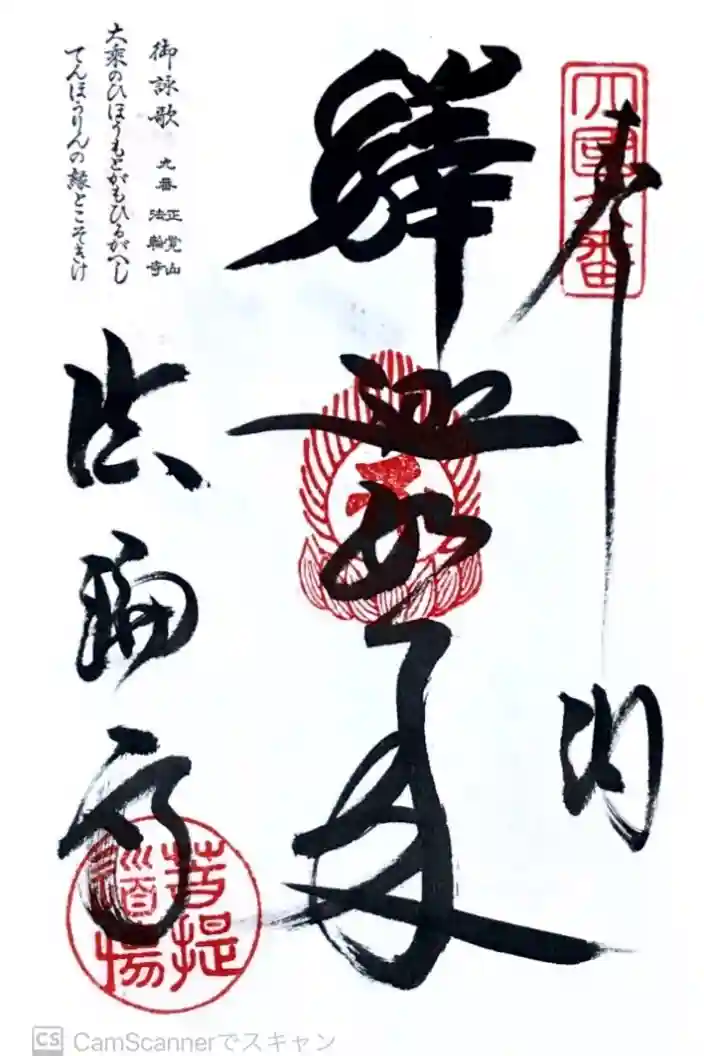 奉納
四國九番
釋迦如来
法輪寺
菩提道場
御詠歌 九番 正覚山 法輪寺
大乘のひほうもとがもひるがへし
てんほうりんの縁とこそきけ
CS CamScannerでスキャン